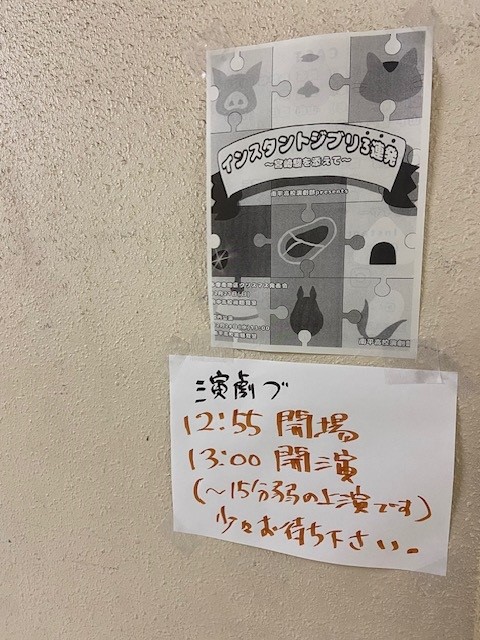 インスタントジブリ3連発
～宮崎駿を添えて～
南平高校演劇部presents
南平高校演劇部
演劇ブ
12:55 開場
13:00 開演
(～15分弱の上演です)
少々お待ち下さい。